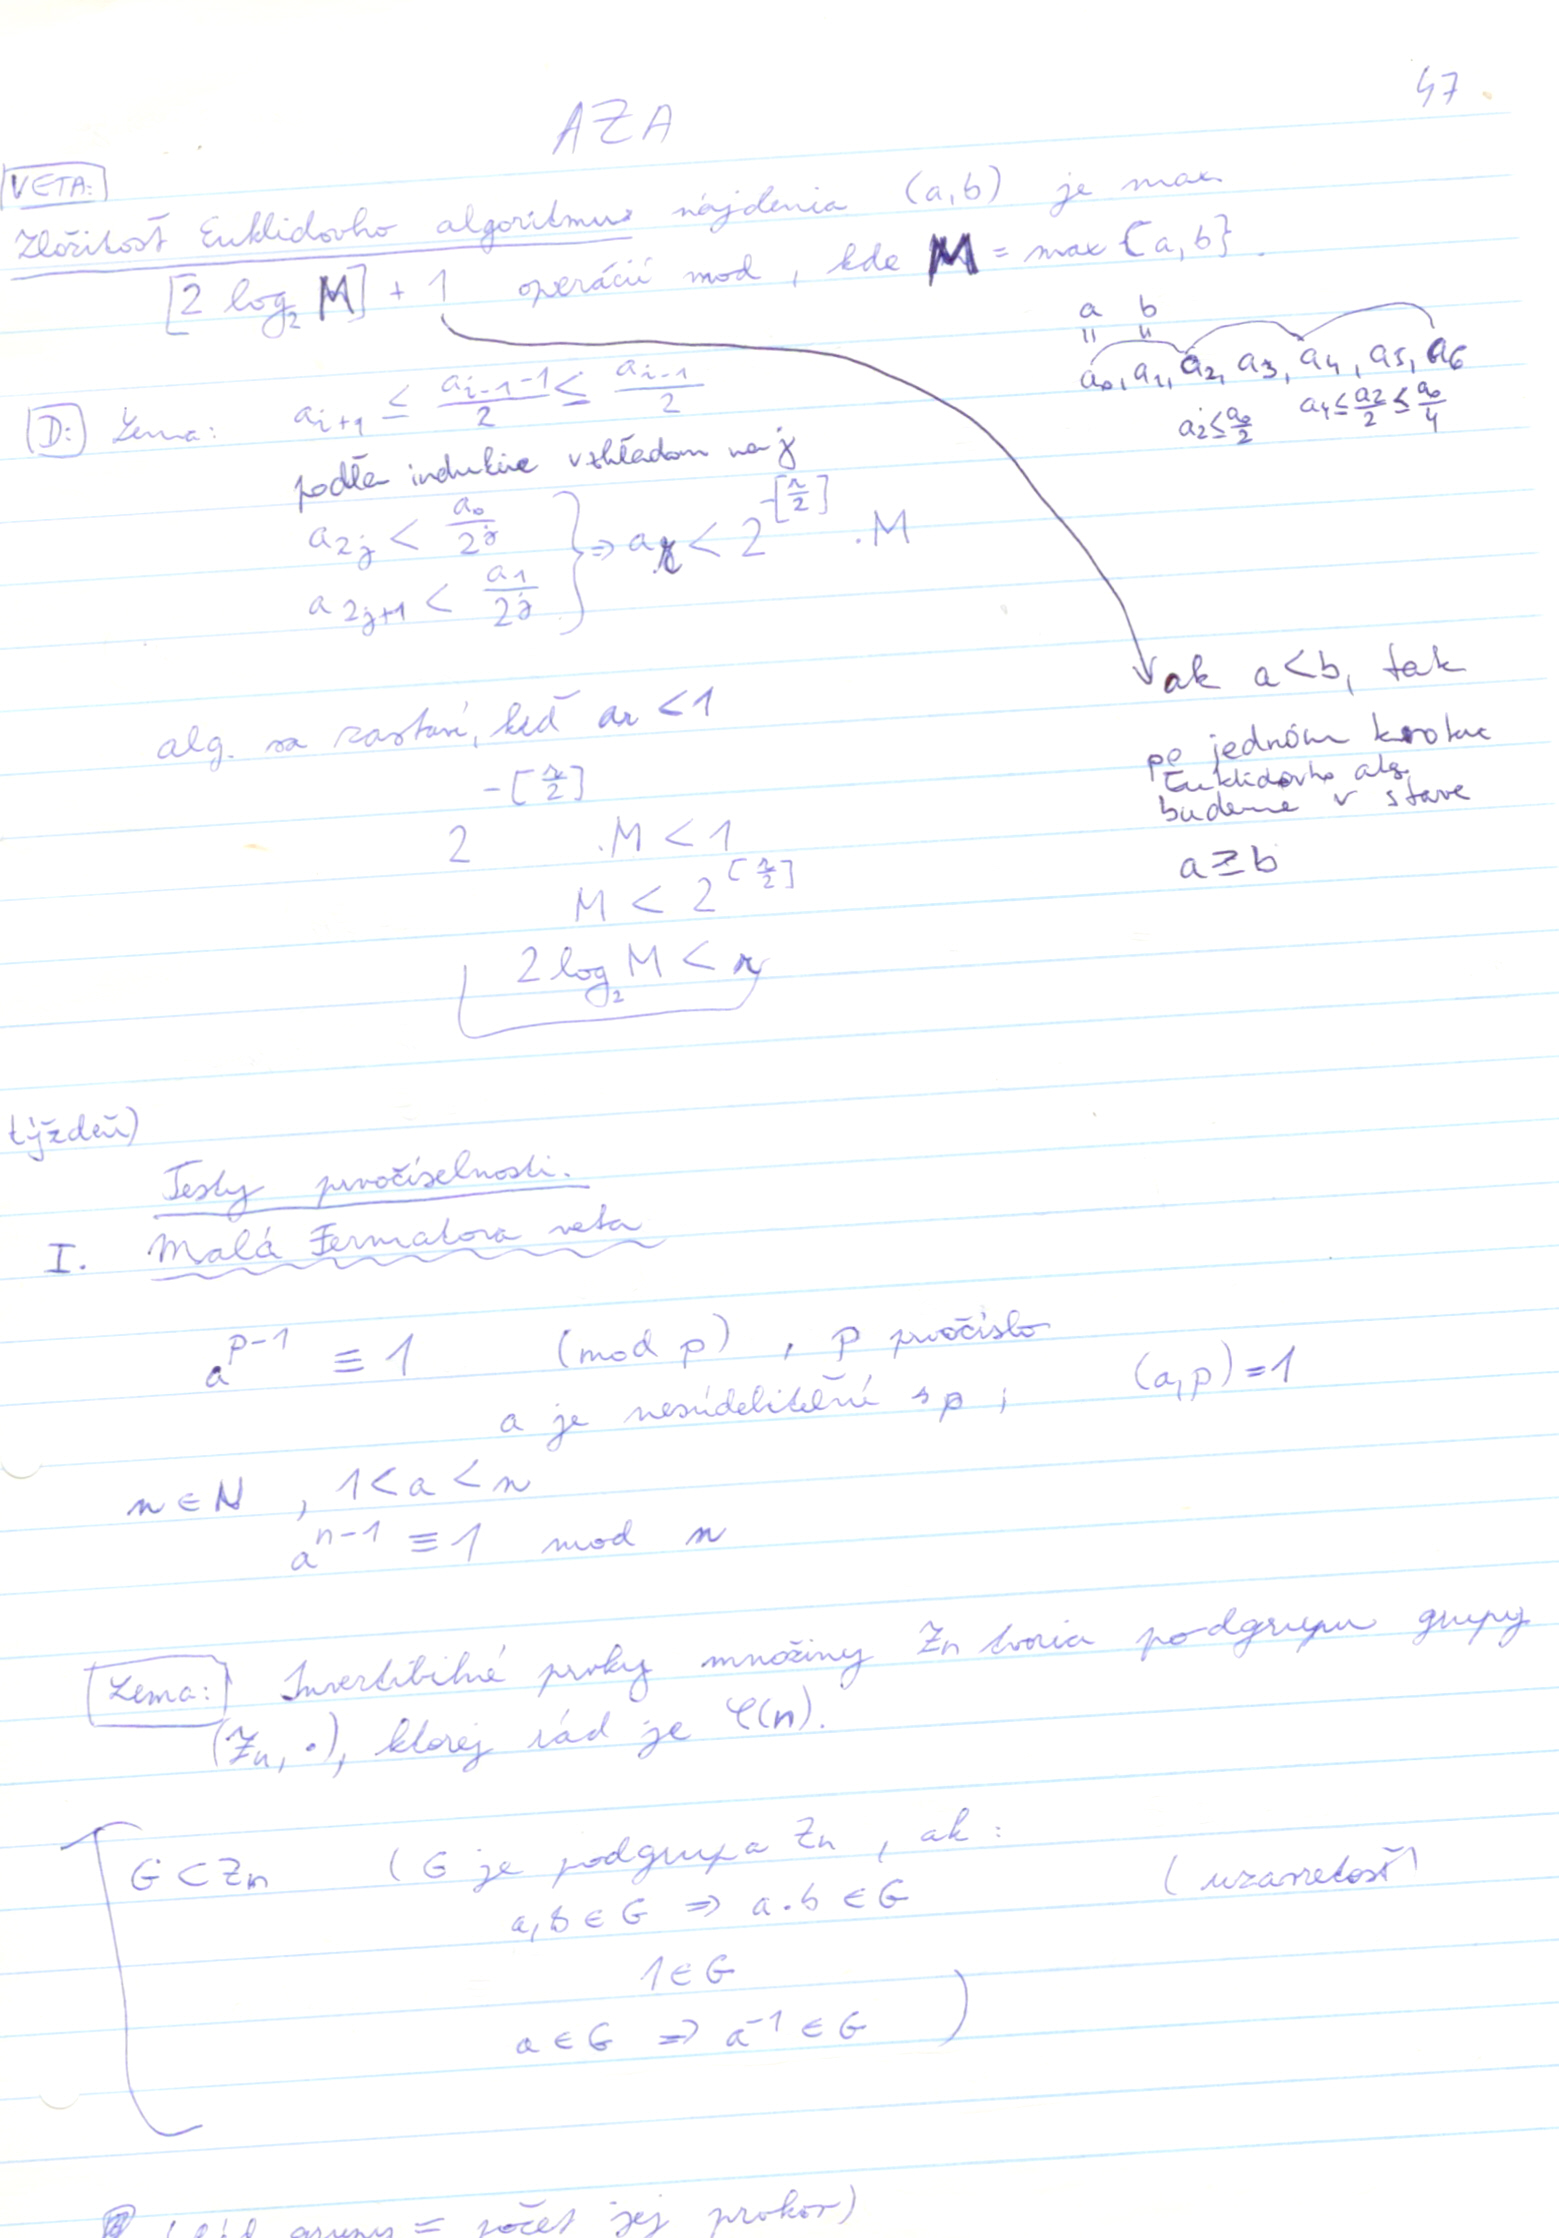 47
AZA
VETA:
Zložitosť Euklidovho algoritmus nájdenia (a,b) je max
[2 log₂ M] + 1 operácií mod, kde M = max {a,b}.
a b
|| ||
a₀, a₁, a₂, a₃, a₄, a₅, a₆
a₂ ≤ a₀/2 a₄ ≤ a₂/2 ≤ a₀/4
D: Lema: a_{i+1} ≤ (a_{i-1} - 1)/2 ≤ a_{i-1}/2
podľa indukcie vzhľadom na j
a_{2j} < a₀/2^j
a_{2j+1} < a₁/2^j } ⇒ a_r < 2^{-[r/2]} . M
ak a<b, tak
po jednom kroku
Euklidovho alg.
budeme v stave
a ≥ b
alg. sa zastaví, keď a_r < 1
2^{-[r/2]} . M < 1
M < 2^{[r/2]}
2 log₂ M < r
týždeň)
Testy prvočíselnosti.
I. Malá Fermatova veta
a^{p-1} ≡ 1 (mod p) , p prvočíslo
a je nesúdeliteľné s p ; (a,p)=1
n ∈ N , 1 < a < n
a^{n-1} ≡ 1 mod n
Lema: Invertibilné prvky množiny Zn tvoria podgrupu grupy
(Zn, ·), ktorej rád je φ(n).
G ⊂ Zn (G je podgrupa Zn , ak :
a,b ∈ G ⇒ a.b ∈ G (uzavretosť)
1 ∈ G
a ∈ G ⇒ a^{-1} ∈ G )
(rád grupy = počet jej prvkov)